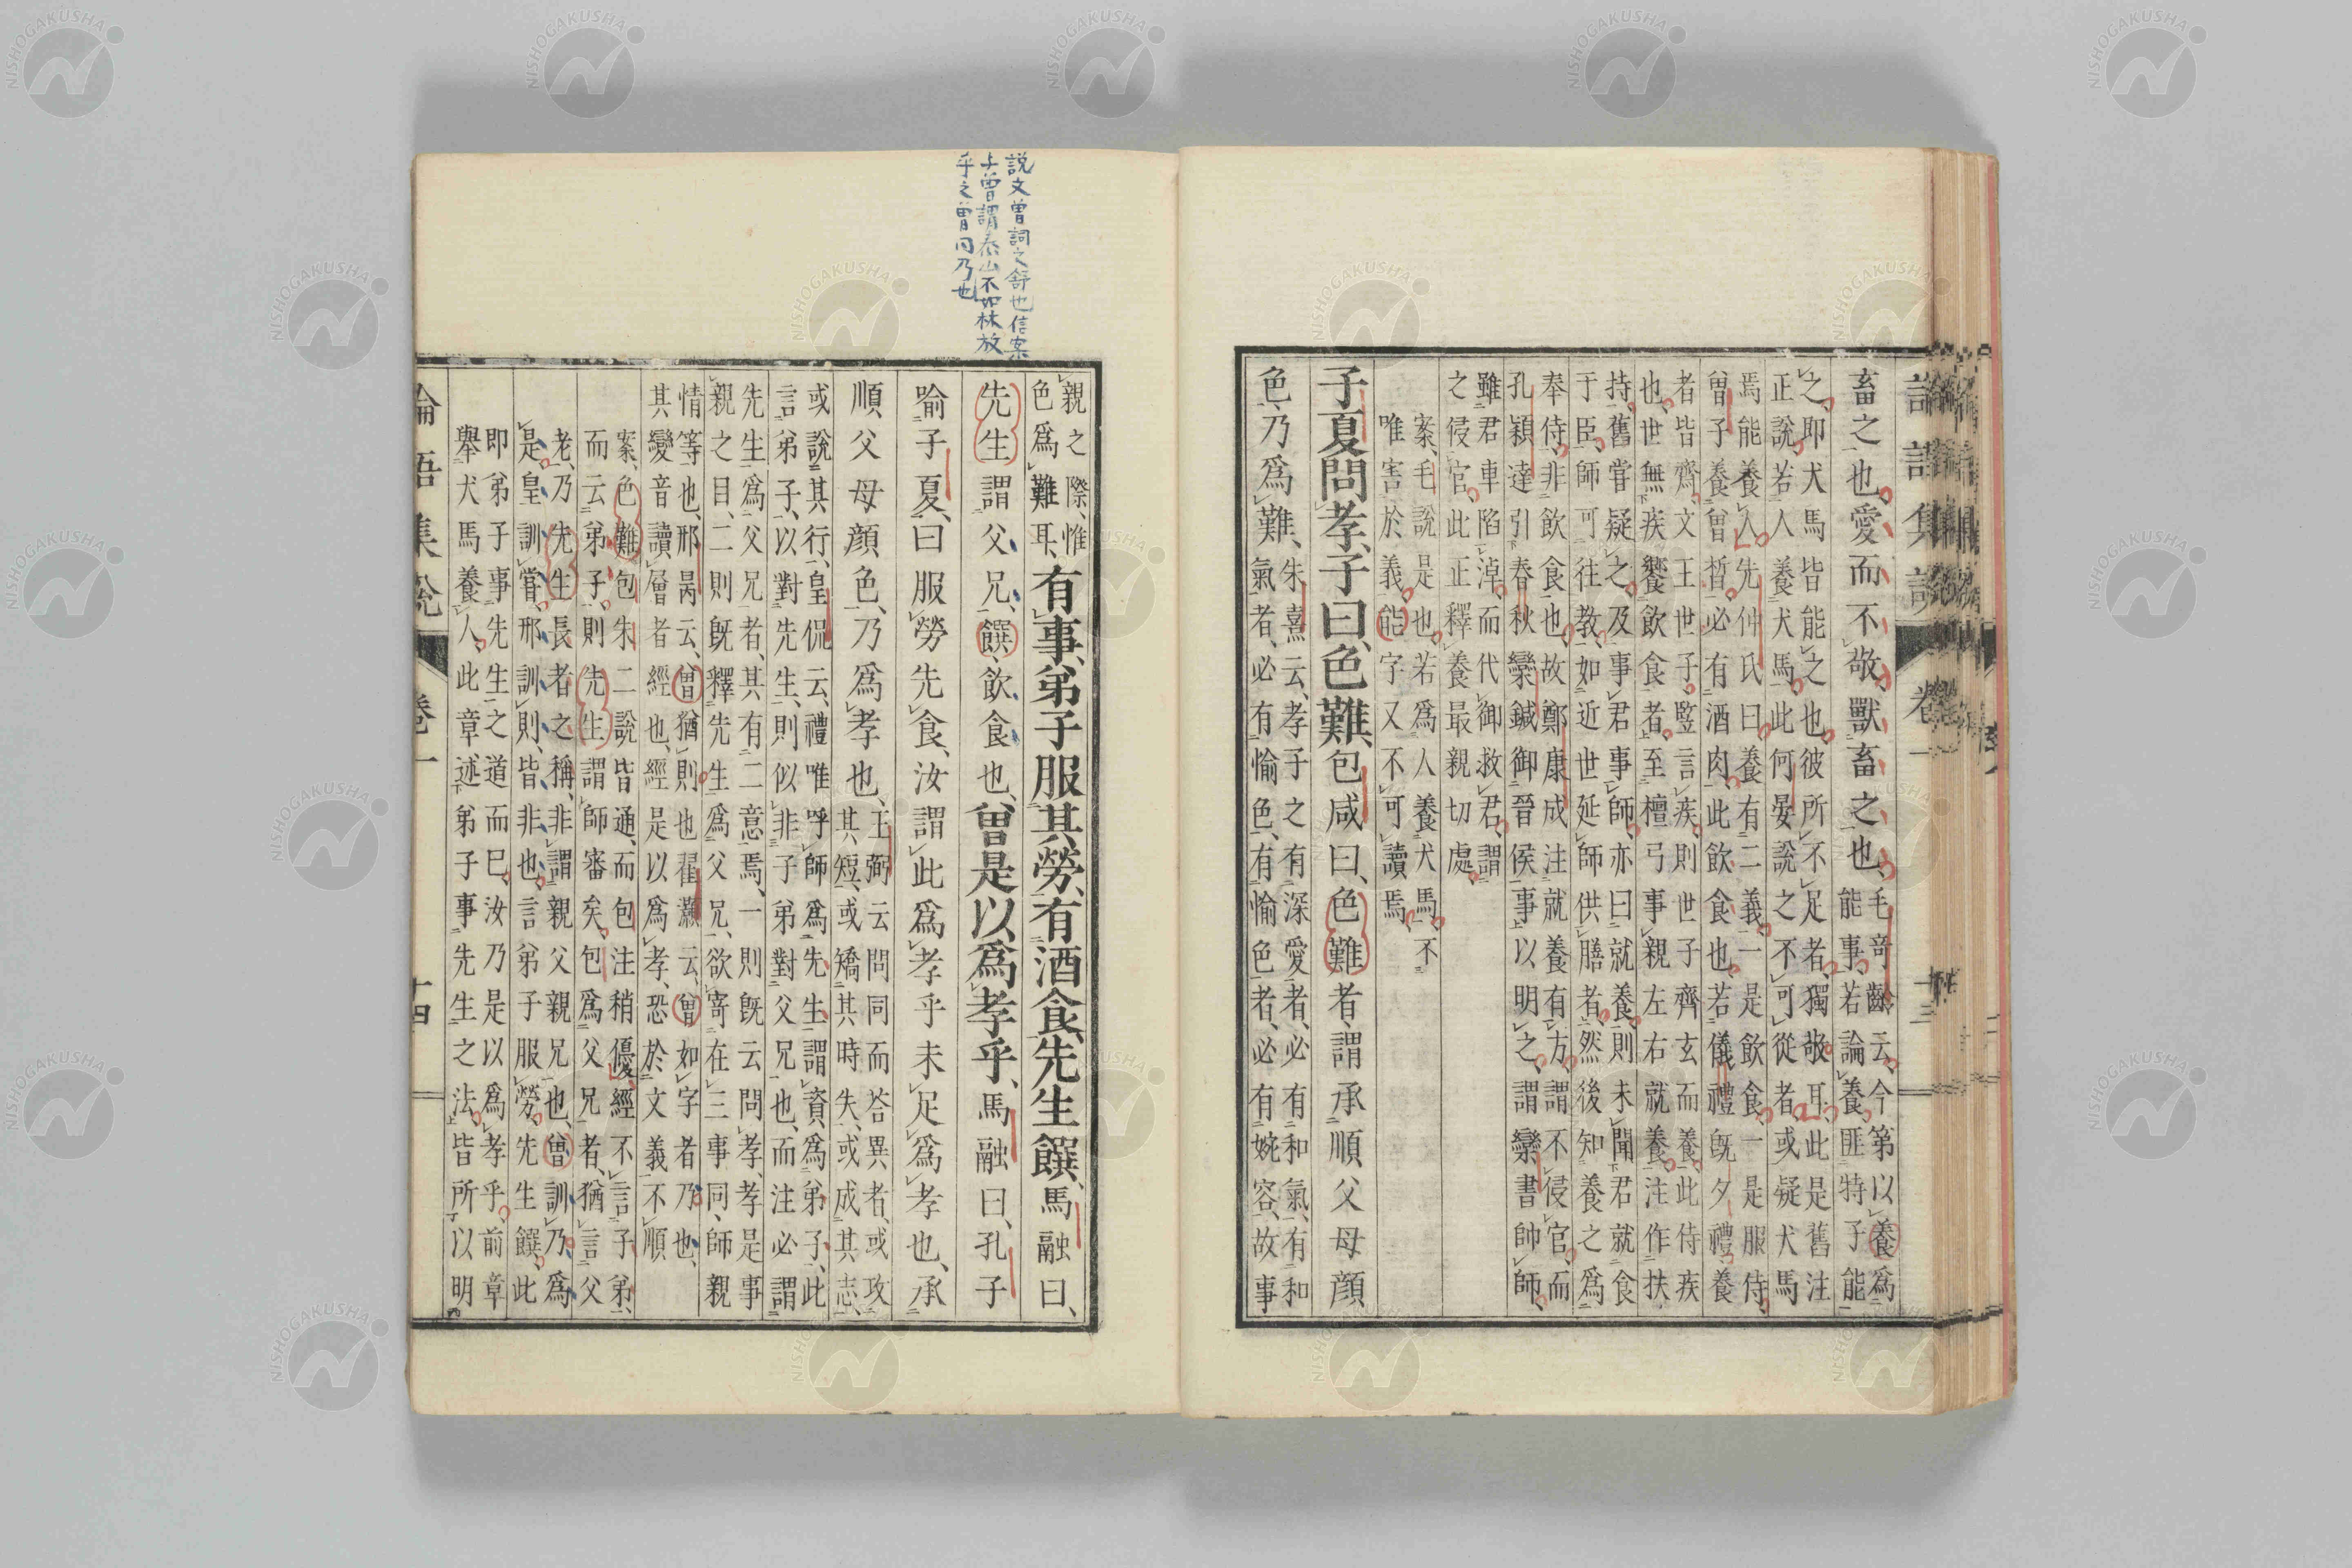 畜之也、愛而不敬、獸畜之也、
毛奇齡云、今第以養爲
能事、若論養匪特子能
之、即犬馬皆能之也、彼所不足者、獨敬耳、此是舊注
正說、若人養犬馬、此何晏說之不可從者、或疑犬馬
焉能養人、先仲氏曰、養有二義、一是飲食、一是服侍、
曾子養曾晳、必有酒肉、此飲食也、若儀禮旣夕禮養
者皆齊、文王世子、曁言疾、則世子齊玄而養、此侍疾
也、世無疾饗飲食者、至檀弓事親左右就養、注作扶
持、舊嘗疑之、及事君事師、亦曰就養、則未聞君就食
于臣、師可往教、如近世延師供膳者、然後知養之爲
奉侍、非飲食也、故鄭康成注就養有方、謂不侵官、而
孔穎達引春秋欒鍼御晉侯事以明之、謂欒書帥師、
雖君車陷淖、而代御救君、謂
之侵官、此正釋養最親切處、
案、毛說是也、若爲人養犬馬、不
唯害於義、能字又不可讀焉、
子夏問孝、子曰、色難、包咸曰、色難者、謂承順父母顏
色、乃爲難、
朱熹云、孝子之有深愛者、必有和氣、有和
氣者、必有愉色、有愉色者、必有婉容、故事
親之際、惟
色爲難耳、
有事、弟子服其勞、有酒食、先生饌、馬融曰、
先生謂父兄、饌、飲食也、曾是以爲孝乎、馬融曰、孔子
喻子夏、曰服勞先食、汝謂此爲孝乎、未足爲孝也、承
順父母顏色、乃爲孝也、
王弼云、問同而答異者、或攻
其短、或矯其時失、或成其志、
或說其行、皇侃云、禮唯呼師爲先生、謂資爲弟子、此
言弟子、以對先生、則似非子弟對父兄也、而注必謂
先生爲父兄者、其有二意焉、一則旣云問孝、孝是事
親之目、二則旣釋先生爲父兄、欲寄在三事同、師親
情等也、邢昺云、曾猶則也、翟灝云、曾如字者乃也、
其變音讀層者經也、經是以爲孝、恐於文義不順、
案、色難包朱二說皆通、而包注稍優、經不言子弟、
而云弟子、則先生謂師審矣、包爲父兄者、猶言父
老、乃先生長者之稱、非謂親父親兄也、曾訓乃、爲
是、皇訓嘗、邢訓則、皆非也、言弟子服勞、先生饌、此
即弟子事先生之道而已、汝乃是以爲孝乎、前章
舉犬馬養人、此章述弟子事先生之法、皆所以明
論語集說
卷一
十四
説文曾詞之舒也信案
上曾謂泰山不如林放
乎之曾同乃也